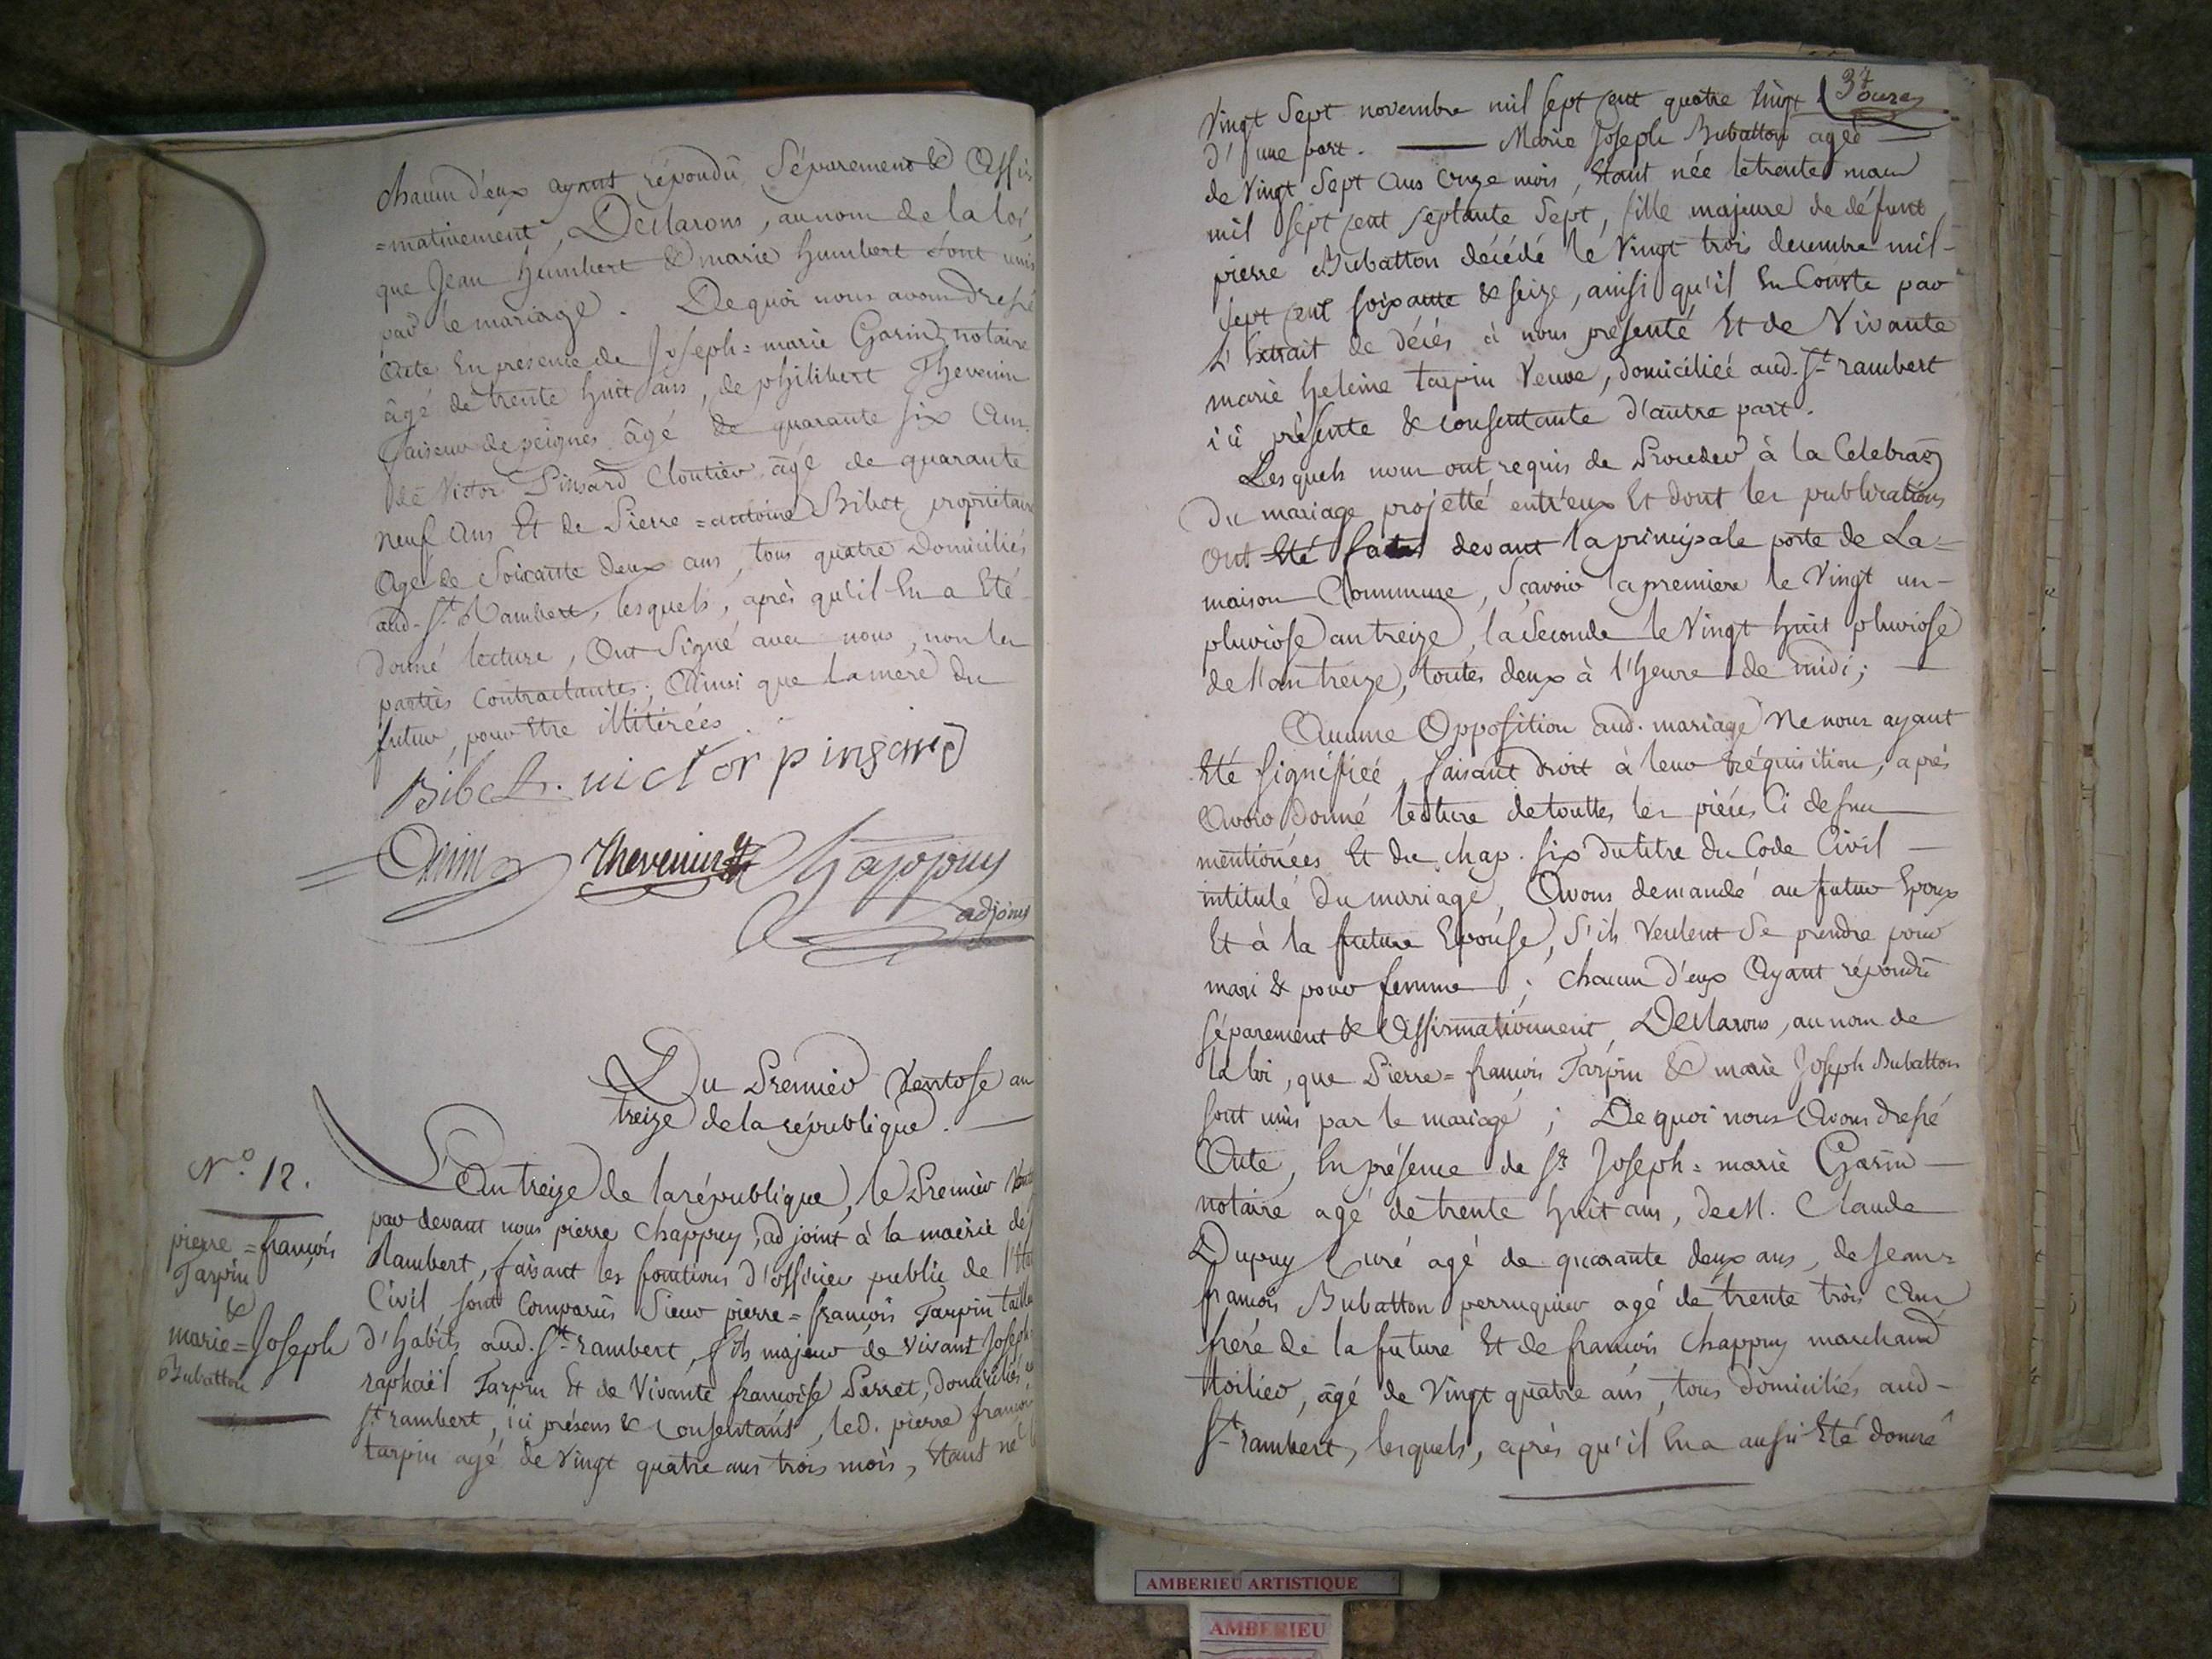 chacun d'eux ayant répondû séparement & Affir
=mativement, Declarons, au nom de la loi,
que Jean humbert & marie humbert sont unis
par le mariage. De quoi nous avons dressé
Acte En présence de Joseph=marie Garin notaire
âgé de trente huit ans, de philibert Thevenin
faiseur de peignes âgé de quarante six Ans
de Victor Pinsard Cloutier âgé de quarante
neuf Ans Et de Pierre=antoine Bibet propriétaire
Age de Soixante deux ans, tous quatre Domiciliés
aud. St Rambert, lesquels, après qu'il En a Eté
donné lecture, Ont Signé avec nous, non les
parties Contractantes; Ainsi que la mere du
futur, pour Etre illitérées.
Bibet. victor pinsard
Garin Thevenin Chappuy
adjoint
Du Premier Ventose an
treize de la république.
N.o 12.
pierre=françois
Tarpin
&
marie=Joseph
Bubatton
L'An treize de la république, le Premier
par devant nous pierre Chappuy, adjoint à la mairie de
Rambert, faisant les fonctions d'officier public de l'
Civil sont Comparûs Sieur pierre=françois Tarpin
d'habits aud. St rambert, fils majeur de vivant Joseph
raphaël Tarpin Et de Vivante françoise Perret, Domiciliés
St rambert, ici présens & Consentans, led. pierre françois
tarpin agé de Vingt quatre ans trois mois, Etant né
37
Vingt Sept novembre mil sept cent quatre Vingt
d'une part. — Marie Joseph Bubatton agée
de Vingt Sept Ans Onze mois, Etant née le trente mars
mil sept cent septante sept, fille majeure de défunt
pierre Bubatton décédé le Vingt trois decembre mil-
sept cent soixante & seize, ainsi qu'il En Conste par
L'Extrait de décés à nous présenté Et de Vivante
marie heleine tarpin Veuve, domiciliée aud. St rambert
ici présente & consentante d'autre part.
Lesquels nous ont requis de Proceder à la Celebraon
Du mariage projetté entr'eux Et dont les publications
Ont Eté faites devant la principale porte de La=
maison Commune, Sçavoir la premiere le Vingt un-
pluviose an treize, la Seconde le Vingt huit pluviose
de l'an treize, toutes deux à l'heure de midi;
Aucune Opposition aud. mariage Ne nous ayant
Eté signifiée, faisant droit à leur réquisition, après
Avoir Donné lecture de touttes les pièces Ci dessus
mentionées Et du chap. six du titre du Code Civil
intitulé Du mariage, Avons demandé au futur Epoux
Et à la future Epouse, S'ils Veulent Se prendre pour
mari & pour femme; chacun d'eux Ayant répondû
séparement & Affirmativement, Declarons, au nom de
la loi, que Pierre=françois Tarpin & marie Joseph Bubatton
sont unis par le mariage; De quoi nous Avons dressé
Acte, En présence de Sr Joseph=marie Garin
notaire agé de trente huit ans, de M. Claude
Dupuy Curé agé de quarante deux ans, de Jean=
françois Bubatton perruquier agé de trente trois Ans
frere de la future Et de françois Chappuy marchand
toilier, âgé de Vingt quatre ans, tous Domiciliés aud-
St rambert, lesquels, après qu'il En a aussi Eté donné
AMBERIEU ARTISTIQUE
AMBERIEU